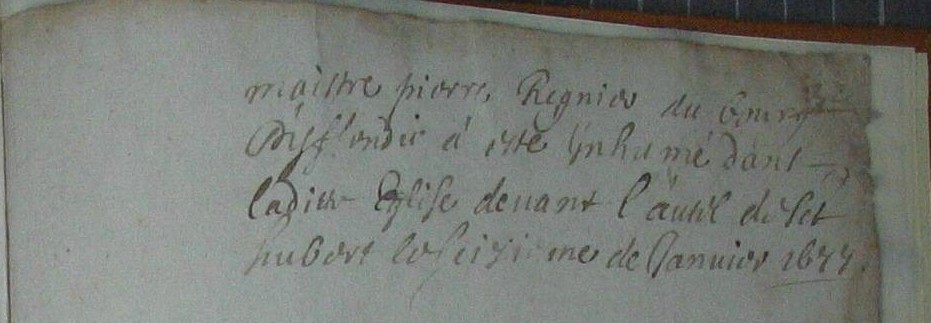 maistre pierre Regnier du bourg
a esté Inhumé dans
ladite Eglise devant l'autel de St
hubert le seiziesme de Janvier 1677